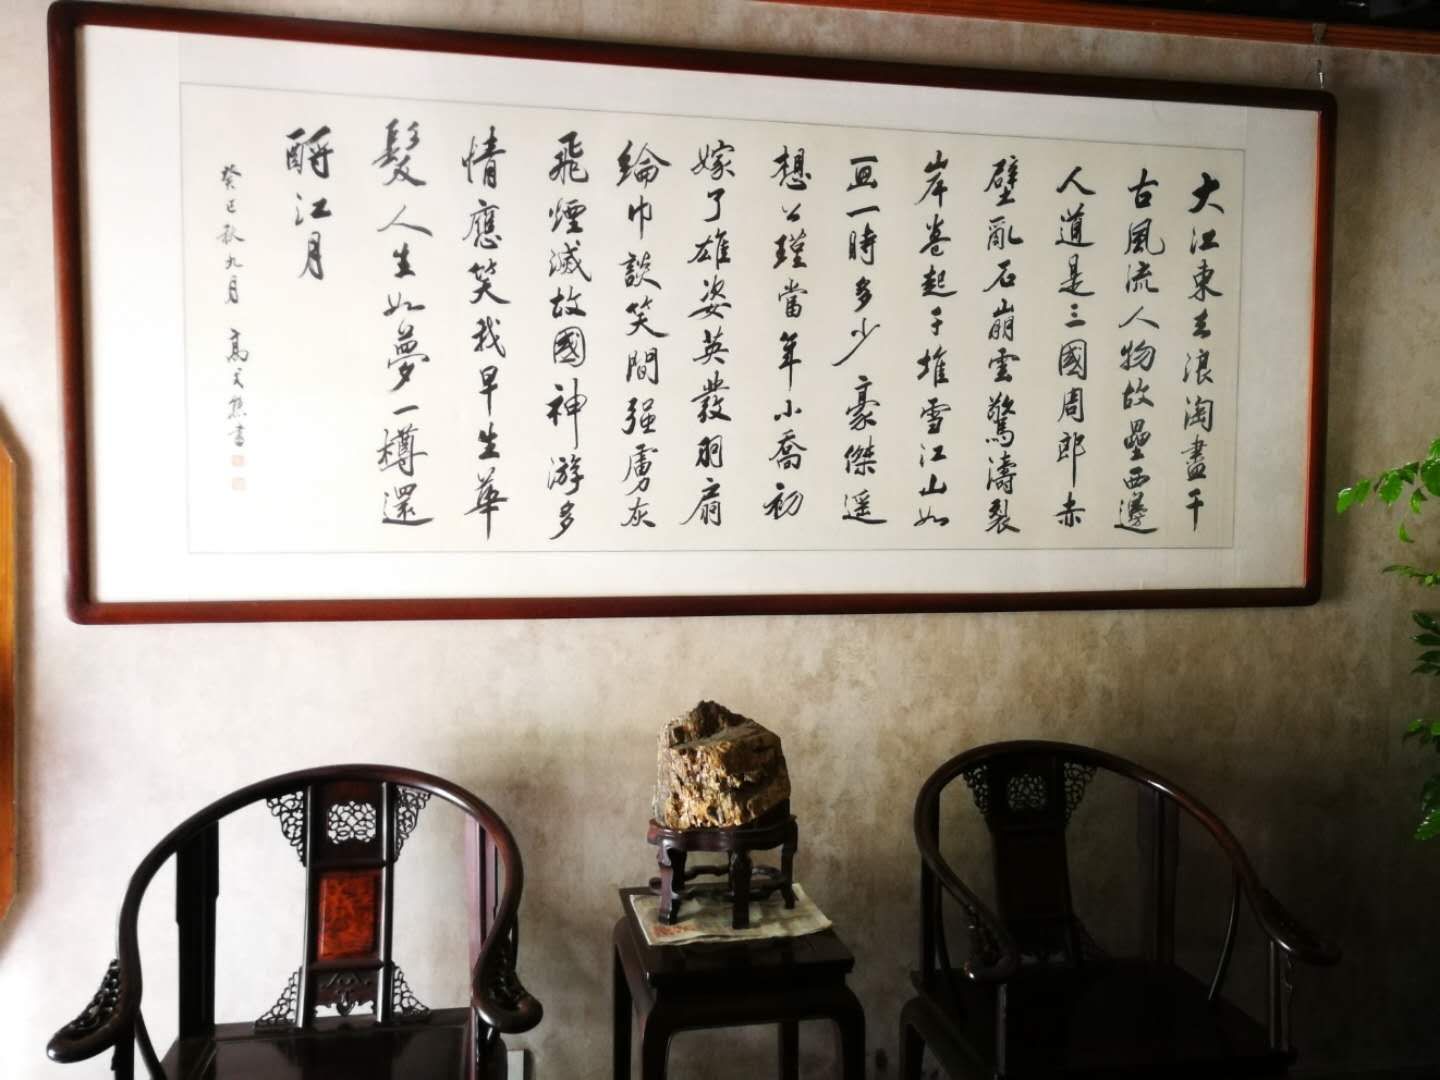 大江東去浪淘盡千
古風流人物故壘西邊
人道是三國周郎赤
壁亂石崩雲驚濤裂
岸卷起千堆雪江山如
畫一時多少豪傑遥
想公瑾當年小喬初
嫁了雄姿英發羽扇
綸巾談笑間强虜灰
飛煙滅故國神游多
情應笑我早生華
髮人生如夢一樽還
酹江月
癸巳秋九月 高書